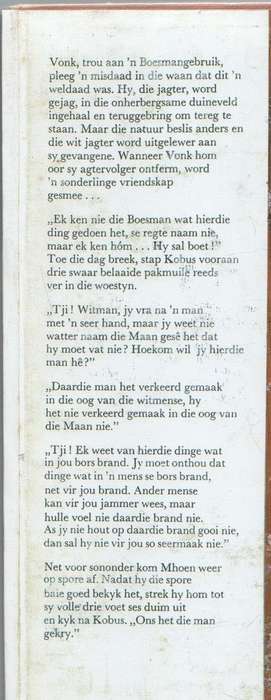 Vonk, trou aan 'n Boesmangebruik,
pleeg 'n misdaad in die waan dat dit 'n
weldaad was. Hy, die jagter, word
gejag, in die onherbergsame duineveld
ingehaal en teruggebring om tereg te
staan. Maar die natuur beslis anders en
die wit jagter word uitgelewer aan
sy gevangene. Wanneer Vonk hom
oor sy agtervolger ontferm, word
'n sonderlinge vriendskap
gesmee . . .
„Ek ken nie die Boesman wat hierdie
ding gedoen het, se regte naam nie,
maar ek ken hóm . . . Hy sal boet!”
Toe die dag breek, stap Kobus vooraan
drie swaar belaaide pakmuile reeds
ver in die woestyn.
„Tji! Witman, jy vra na 'n man
met 'n seer hand, maar jy weet nie
watter naam die Maan gesê het dat
hy moet vat nie? Hoekom wil jy hierdie
man hê?”
„Daardie man het verkeerd gemaak
in die oog van die witmense, hy
het nie verkeerd gemaak in die oog van
die Maan nie.”
„Tji! Ek weet van hierdie dinge wat
in jou bors brand. Jy moet onthou dat
dinge wat in 'n mens se bors brand,
net vir jou brand. Ander mense
kan vir jou jammer wees, maar
hulle voel nie daardie brand nie.
As jy nie hout op daardie brand gooi nie,
dan sal hy nie vir jou so seermaak nie.”
Net voor sononder kom Mhoen weer
op spore af. Nadat hy die spore
baie goed bekyk het, strek hy hom tot
sy volle drie voet ses duim uit
en kyk na Kobus. „Ons het die man
gekry.”